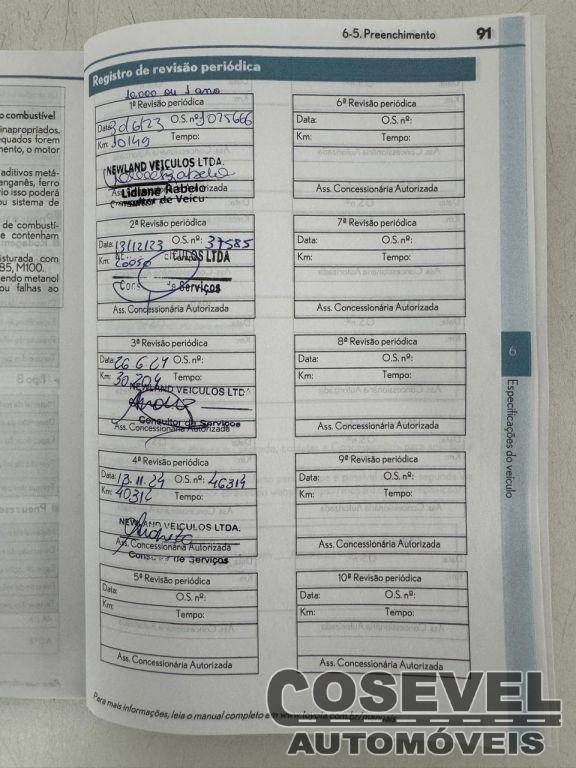 6-5. Preenchimento 91
Registro de revisão periódica
o combustível
inapropriados.
equados forem
mento, o motor
aditivos metá-
anganês, ferro
rio isso poderá
ou sistema de
de combustí-
e contenham
isturada com
85, M100.
endo metanol
ou falhas ao
10.000 ou 1 ano
1ª Revisão periódica
Data: O.S. nº: 1025666
Km: 10149 Tempo:
NEWLAND VEICULOS LTDA.
Ass. Concessionária Autorizada
Lidiane Rabelo
Consultor de Veicu
2ª Revisão periódica
Data: 13/12/23 O.S. nº: 37585
Km: Tempo:
CULOS LTDA
Cons de Serviços
Ass. Concessionária Autorizada
3ª Revisão periódica
Data: 26 6.24 O.S. nº:
Km: 30.204 Tempo:
NEWLAND VEICULOS LTD
Consultor de Serviços
Ass. Concessionária Autorizada
4ª Revisão periódica
Data: 13.11.24 O.S. nº: 46314
Km: 40314 Tempo:
NEWLAND VEÍCULOS LTDA.
Ass. Concessionária Autorizada
de Serviços
5ª Revisão periódica
Data: O.S. nº:
Km: Tempo:
Ass. Concessionária Autorizada
6ª Revisão periódica
Data: O.S. nº:
Km: Tempo:
Ass. Concessionária Autorizada
7ª Revisão periódica
Data: O.S. nº:
Km: Tempo:
Ass. Concessionária Autorizada
8ª Revisão periódica
Data: O.S. nº:
Km: Tempo:
Ass. Concessionária Autorizada
9ª Revisão periódica
Data: O.S. nº:
Km: Tempo:
Ass. Concessionária Autorizada
10ª Revisão periódica
Data: O.S. nº:
Km: Tempo:
Ass. Concessionária Autorizada
6
Especificações do veículo
Para mais informações, leia o manual completo em www.toyota.com.br/manuais
COSEVEL
AUTOMÓVEIS